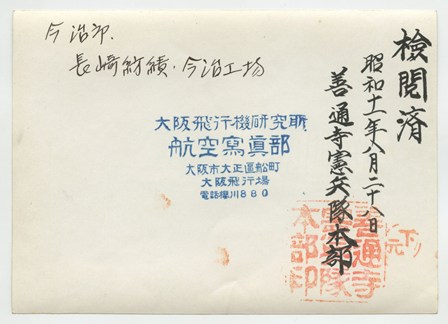 今治市.
長崎紡績・今治工場
大阪飛行機研究所
航空寫眞部
大阪市大正區船町
大阪飛行場
電話櫻川880
檢閲済
昭和十一年八月二十八日
善通寺憲兵隊本部
善通寺
憲兵隊
本部印